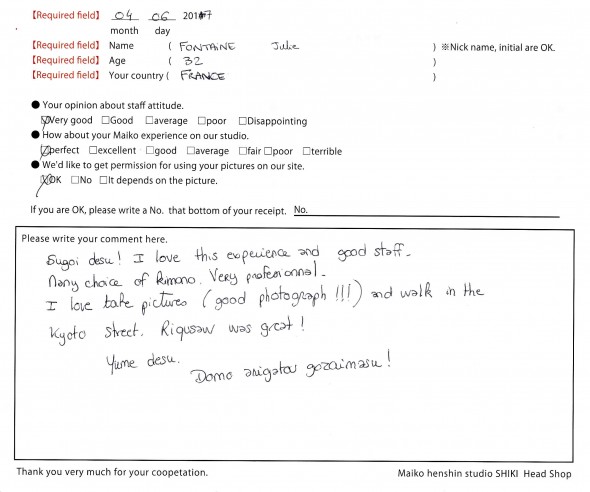 【Required field】 04 06 2017
month day
【Required field】 Name ( FONTAINE Julie ) ※Nick name, initial are OK.
【Required field】 Age ( 32 )
【Required field】 Your country ( FRANCE )
● Your opinion about staff attitude.
☑Very good □Good □average □poor □Disappointing
● How about your Maiko experience on our studio.
☑perfect □excellent □good □average □fair □poor □terrible
● We'd like to get permission for using your pictures on our site.
☑OK □No □It depends on the picture.
If you are OK, please write a No. that bottom of your receipt. No.
Please write your comment here.
Sugoi desu! I love this experience and good staff.
Many choice of kimono. Very professionnal.
I love take pictures (good photograph !!!) and walk in the
Kyoto street. Riqusaw was great!
Yume desu.
Domo arigatou gozaimasu!
Thank you very much for your coopetation. Maiko henshin studio SHIKI Head Shop